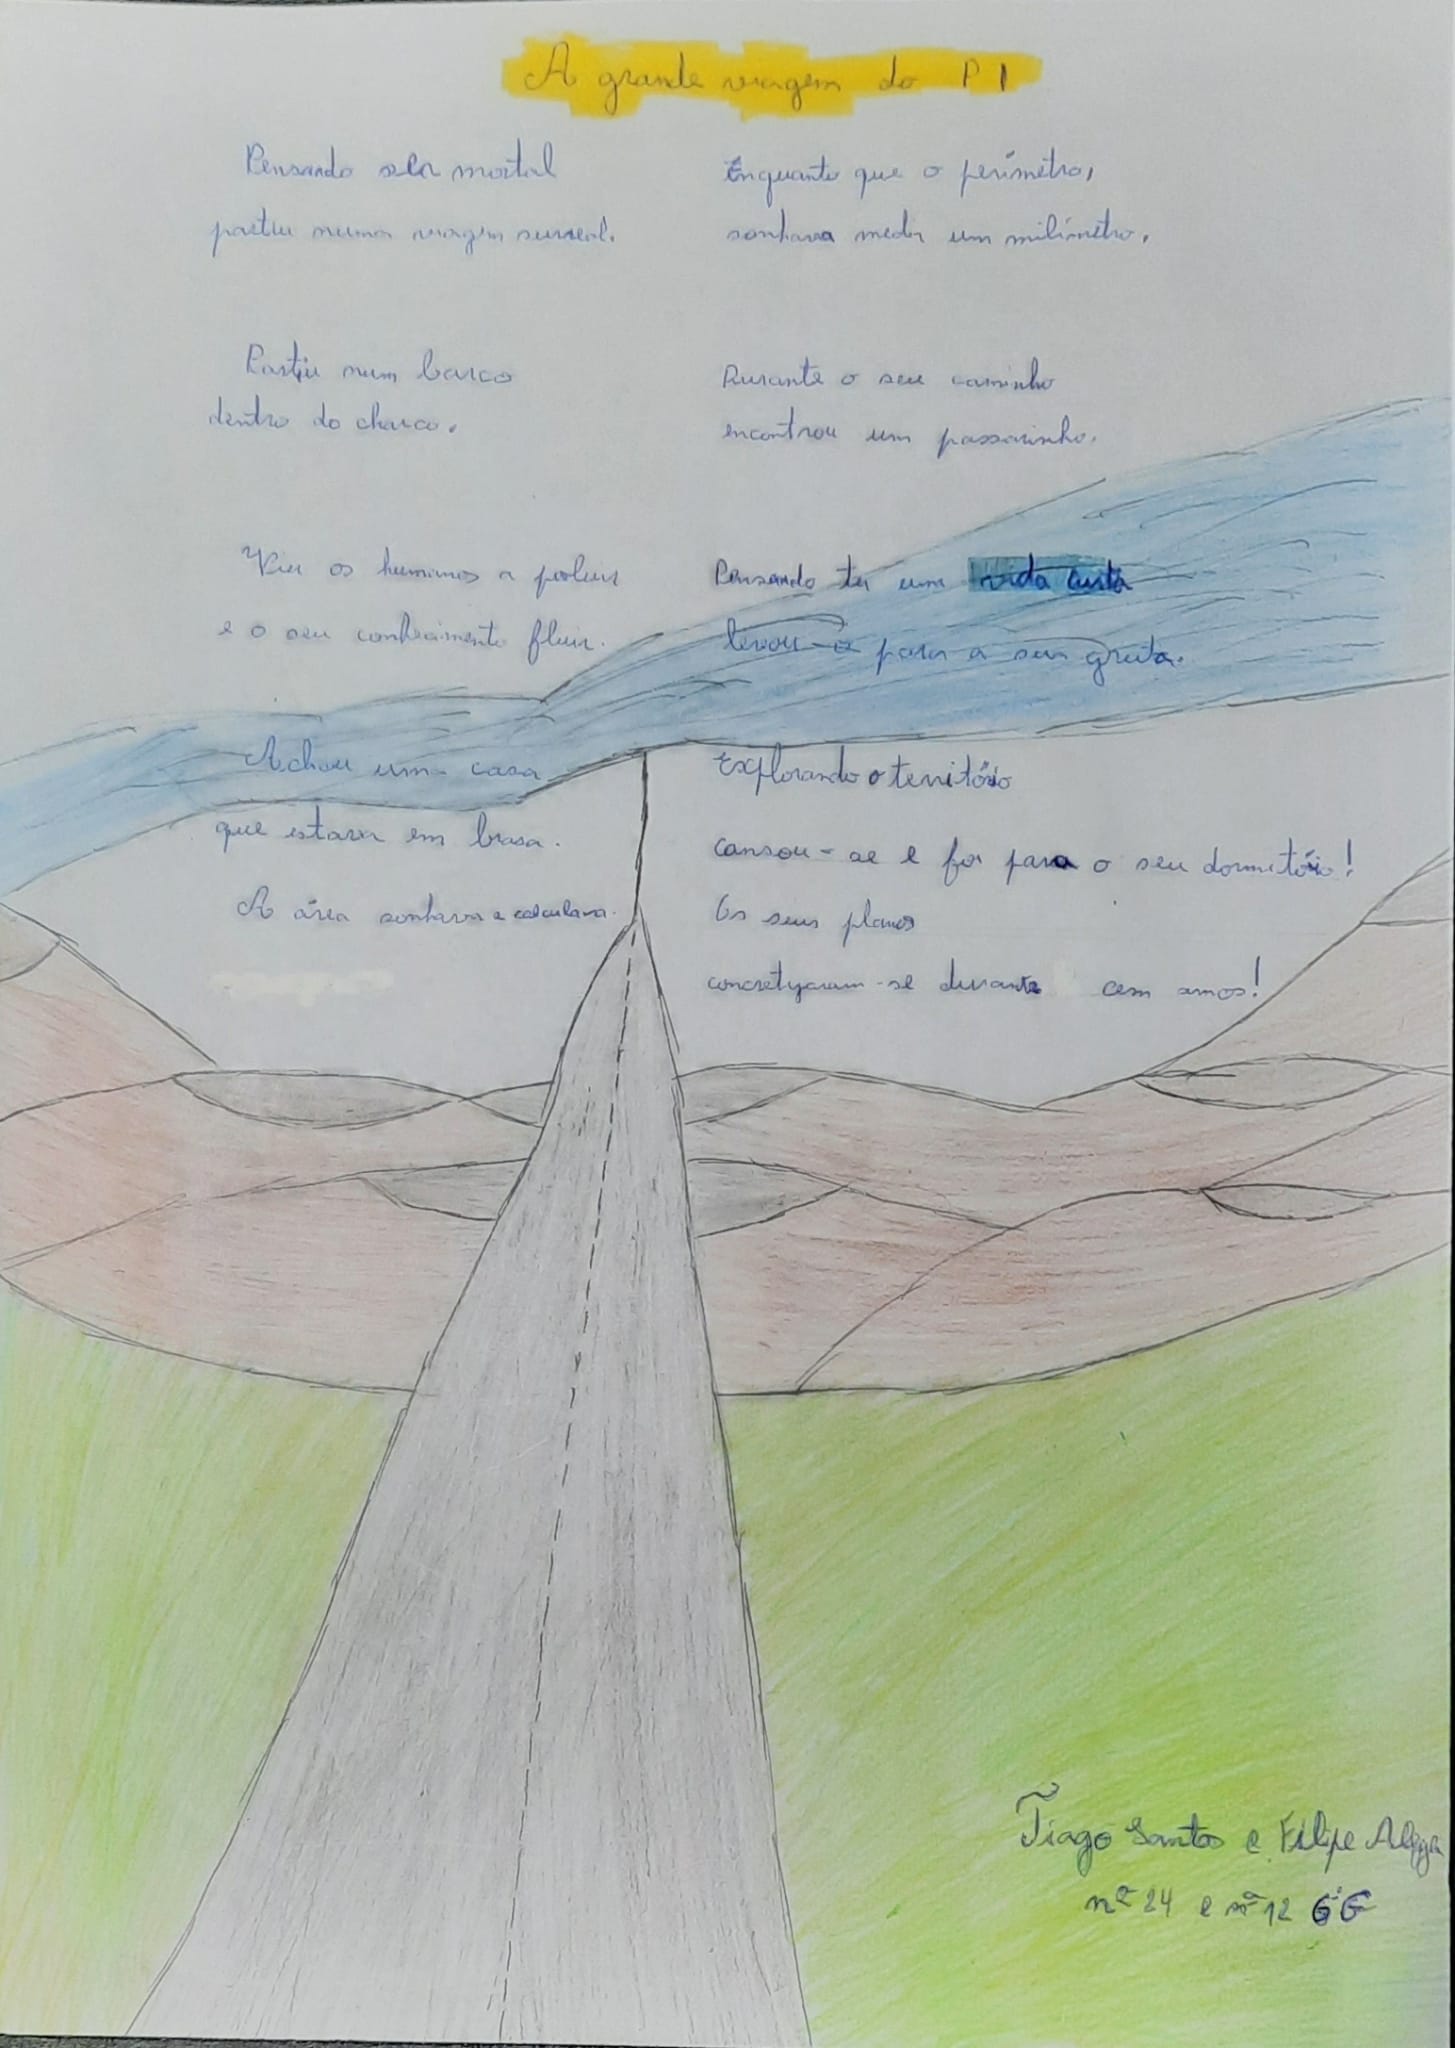 A grande viagem do PI
Pensando ser mortal
partiu numa viagem surreal.
Partiu num barco
dentro do charco.
Viu os humanos a poluir
e o seu conhecimento fluir.
Achou uma casa
que estava em brasa.
A área sonhava e calculava.
Enquanto que o perímetro,
sonhava medir um milímetro.
Durante o seu caminho
encontrou um passarinho.
Pensando ter uma vida curta
levou-o para a sua gruta.
Explorando o território
cansou-se e foi para o seu dormitório!
Os seus planos
concretizaram-se durante cem anos!
Tiago Santos e Filipe
nº 24 e nº 12 6ºG